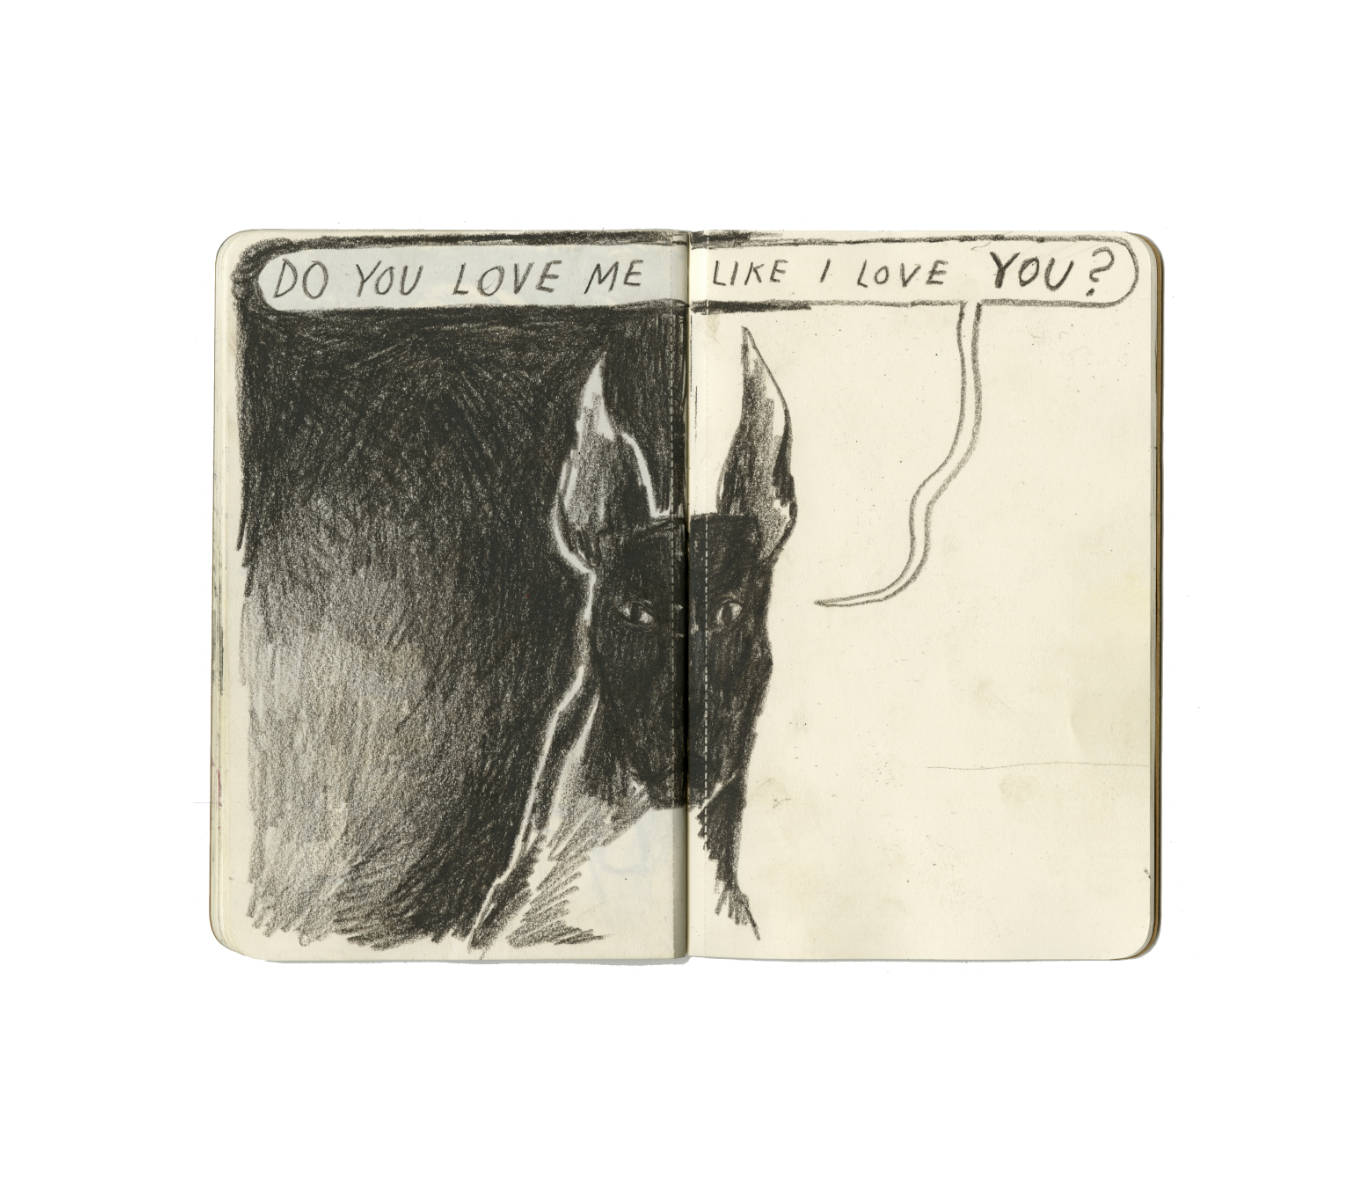 DO YOU LOVE ME LIKE I LOVE YOU?